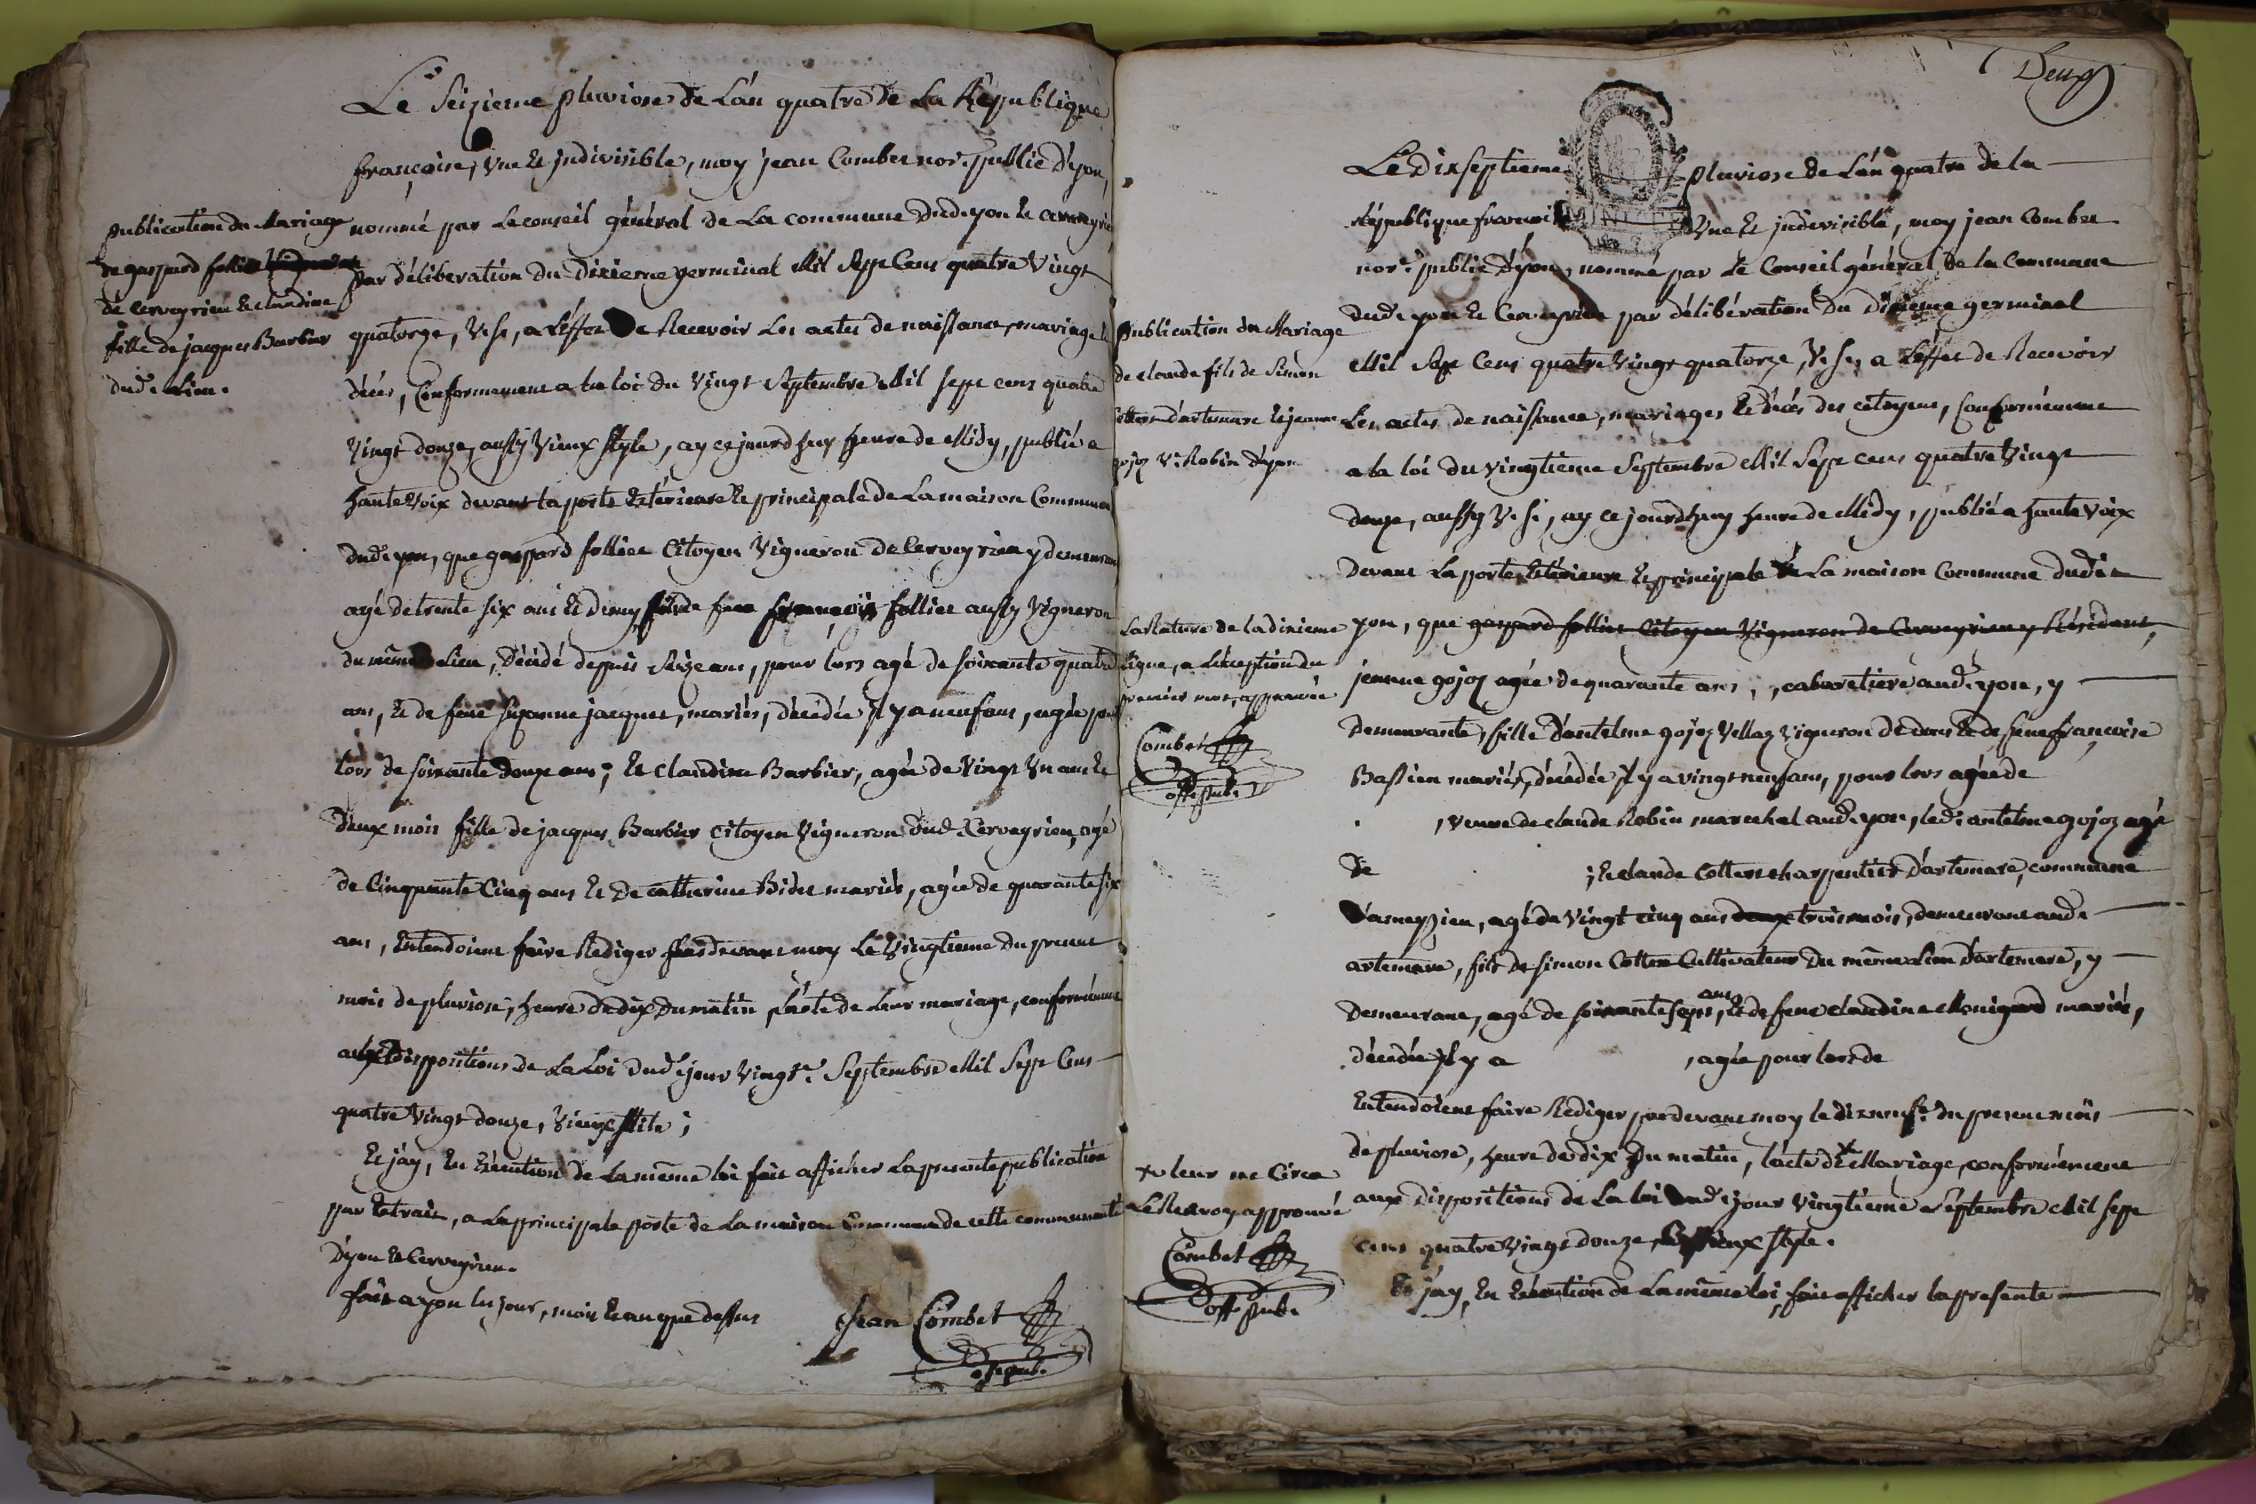 Le seizieme pluviose de L'an quatre de La Republique
françoise, Une et jndivisible, moy jean Combet nore. public d'yon,
nommé par Le conseil général de La commune dudt. yon et cerveyrieu
par déliberation du dixieme germinal Mil Sept Cens quatre Vingt
quatorze, V. st., a L'effet de Recevoir Les actes de naissance, mariage et
décès, Conformement a la loi du Vingt Septembre Mil sept cens quatre
Vingt douze, aussy Vieux style, ay cejourd'huy heure de Midy, publié a
haute Voix devant la porte Extérieure et principale de La maison Commune
dudt. yon, que gaspard follier Citoyen Vigneron de Cerveyrieu y demeurant
agé de trente six ans et demy, fils de feu françois follier aussy Vigneron
du même lieu, décédé depuis Seize ans, pour lors agé de soixante quatre
ans, et de feue Suzanne jacquet, mariés, décédée Jl y a neuf ans, agée pour
lors de soixante douze ans; et Claudine Barbier, agée de Vingt Un ans et
deux mois fille de jacques Barbier Citoyen Vigneron dudt. Cerveyrieu, agé
de Cinquante Cinq ans et de Catherine Bidet mariés, agée de quarante six
ans, Entendoient faire Rédiger pardevant moy Le Vingtieme du present
mois de pluviose, heure de dix du matin L'acte de Leur mariage, conformément
aux dispositions de La Loi dudt. jour Vingte. Septembre Mil Sept Cens
quatre Vingt douze, Vieux stile;
Et j'ay, En Exécution de La même loi fait afficher La presente publication
par Extrait, a La principale porte de La maison Commune de cette communauté
d'yon et Cerveyrieu.
fait a yon les jour, mois et an que dessus
Jean Combet
off. pub.
publication du Mariage
de gaspard follier
de Cerveyrieu et claudine
fille de jacques Barbier
dudt. Lieu.
Deux
Le Dixseptieme pluviose de L'an quatre de la
République françoise Une et jndivisible, moy jean Combet
nore. public d'yon, nommé par Le Conseil général de la Commune
dudt. yon et Cerveyrieu par délibération du dixieme germinal
Mil Sept Cens quatre Vingt quatorze, V. st., a L'effet de Recevoir
Les actes de naissance, mariages et décès des citoyens, Conformément
a la loi du vingtieme Septembre Mil Sept cens quatre Vingt
douze, aussy V. st., ay cejourd'huy heure de Midy, publié a haute Voix
devant La porte Extérieure et principale de La maison Commune dudit
yon, que gaspard follier Citoyen Vigneron de Cerveyrieu y Résidant,
jeanne gojoz agée de quarante ans, cabaretiere audt. yon, y
demeurante, fille d'antelme gojoz Vellaz Vigneron de et de feue françoise
Bassieu mariés, décédée Jl y a vingt neuf ans, pour lors agée de
, veuve de claude Robin marechal audt. yon, ledt. antelme gojoz agé
de ; et claude Cottin charpentier d'artemare, commune
d'ameyzieu, agé de Vingt cinq ans deux trois mois, demeurant audt.
artemare, fils de simon Cottin Cultivateur du même Lieu d'artemare, y
demeurant, agé de soixante sept ans, et de feue claudine Monigard mariés,
décédée Jl y a , agée pour lors de
Entendoient faire Rédiger pardevant moy le dixneufe. du present mois
de pluviose, heure de dix du matin, L'acte de x Mariage, conformément
aux dispositions de La loi dudt. jour Vingtieme Septembre Mil sept
cens quatre Vingt douze, Vieux style.
Et j'ay, En Exécution de La même loi, fait afficher la presente
publication du Mariage
de claude fils de Simon
Cottin d'artemare et jeanne
gojoz Ve. Robin d'yon
La Rature de la dixieme
Ligne, a L'exception du
premier mot, approuvée
Combet
off. pub.
x leur
Le Renvoy approuvé
Combet
off. pub.